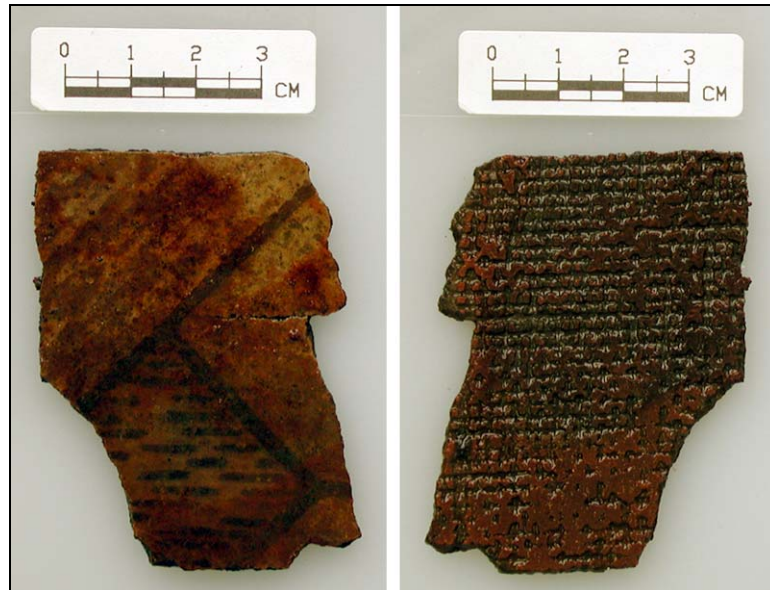 0 1 2 3
CM
0 1 2 3
CM